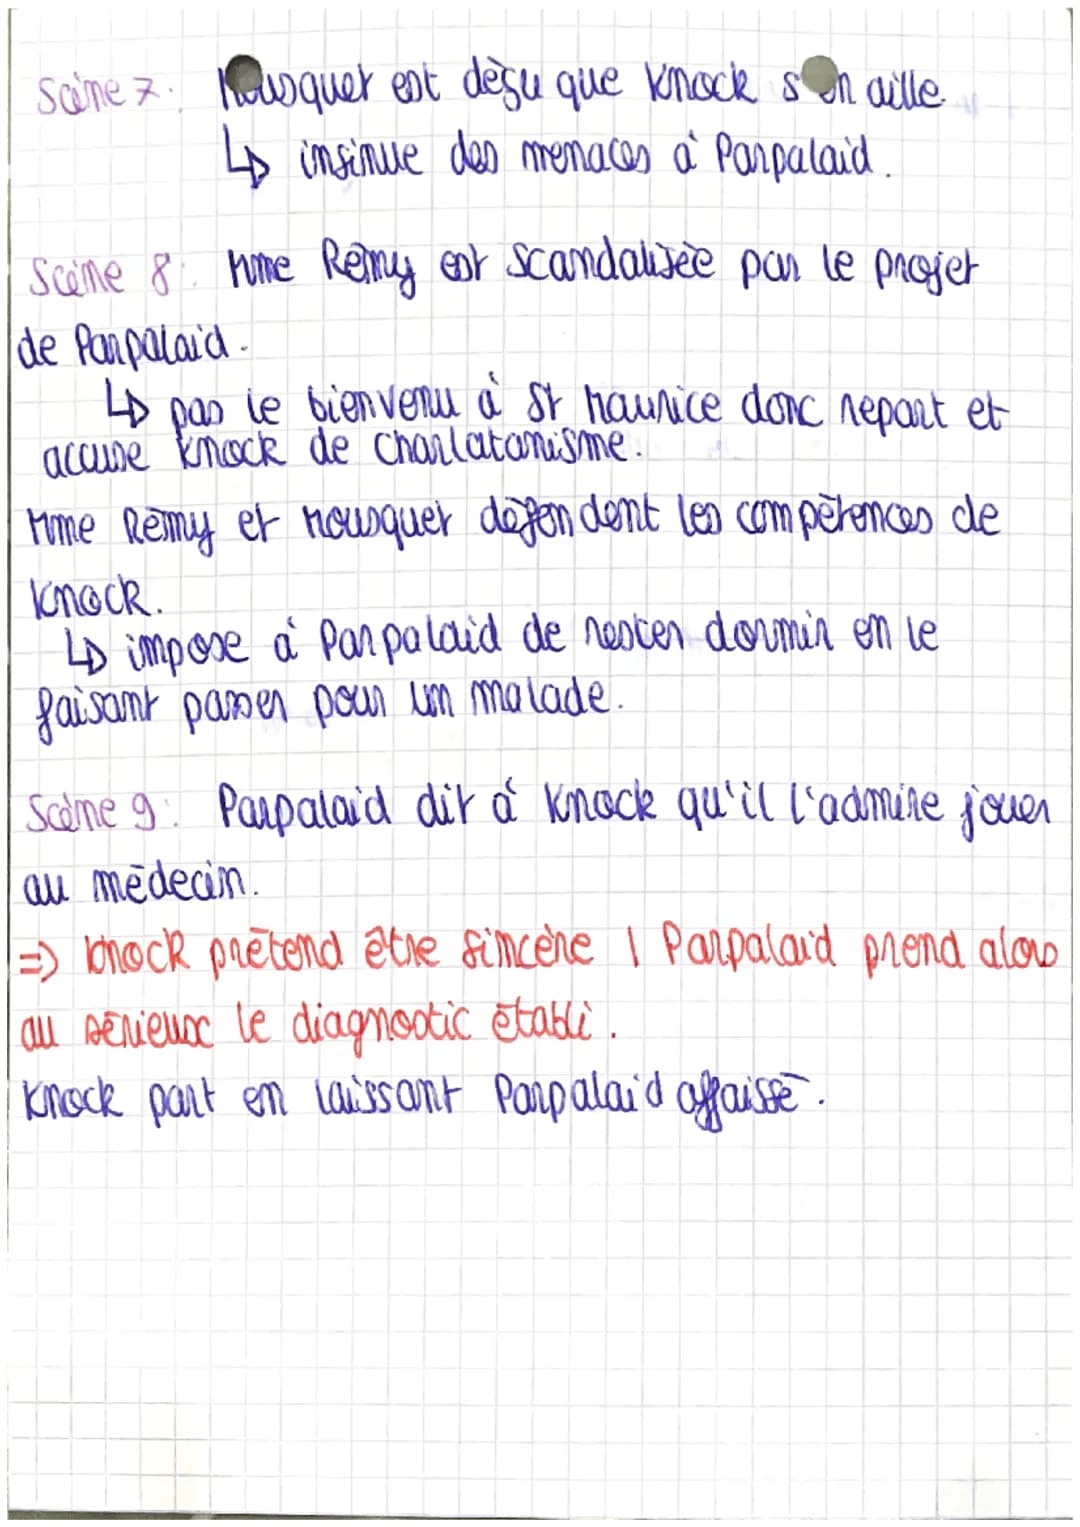 Scène 7: Mousquet est déçu que Knock s'en aille.
↳ insinue des menaces à Parpalaid.
Scène 8: Mme Rémy est scandalisée par le projet
de Parpalaid.
↳ pas le bienvenu à St Maurice donc repart et
accuse Knock de charlatanisme.
Mme Rémy et Mousquet défendent les compétences de
Knock.
↳ impose à Parpalaid de rester dormir en le
faisant passer pour un malade.
Scène 9: Parpalaid dit à Knock qu'il l'admire jouer
au médecin.
=> Knock prétend être sincère / Parpalaid prend alors
au sérieux le diagnostic établi.
Knock part en laissant Parpalaid affaissé.